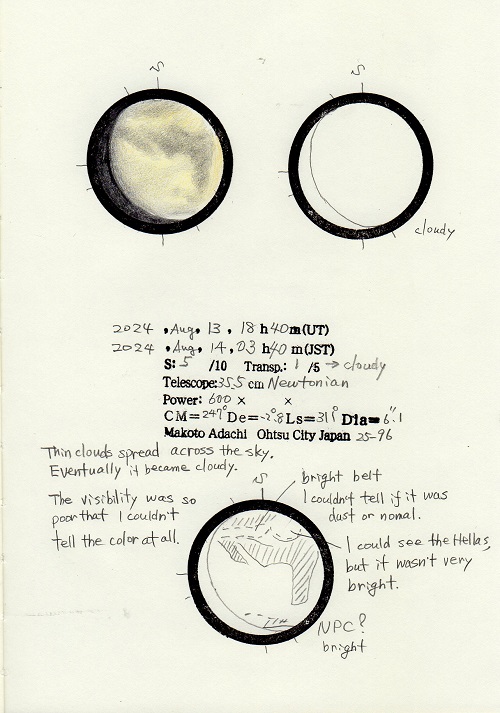 S
S
cloudy
2024, Aug, 13, 18 h 40 m (UT)
2024, Aug, 14, 03 h 40 m (JST)
S: 5 /10 Transp.: 1 /5 → cloudy
Telescope: 35.5 cm Newtonian
Power: 600 × × ×
CM=247° De=-2.°8 Ls=311° Dia=6."1
Makoto Adachi Ohtsu City Japan 25-96
Thin clouds spread across the sky.
Eventually it became cloudy.
The visibility was so
poor that I couldn't
tell the color at all.
S
bright belt
I couldn't tell if it was
dust or nomal.
I could see the Hellas,
but it wasn't very
bright.
NPC?
bright